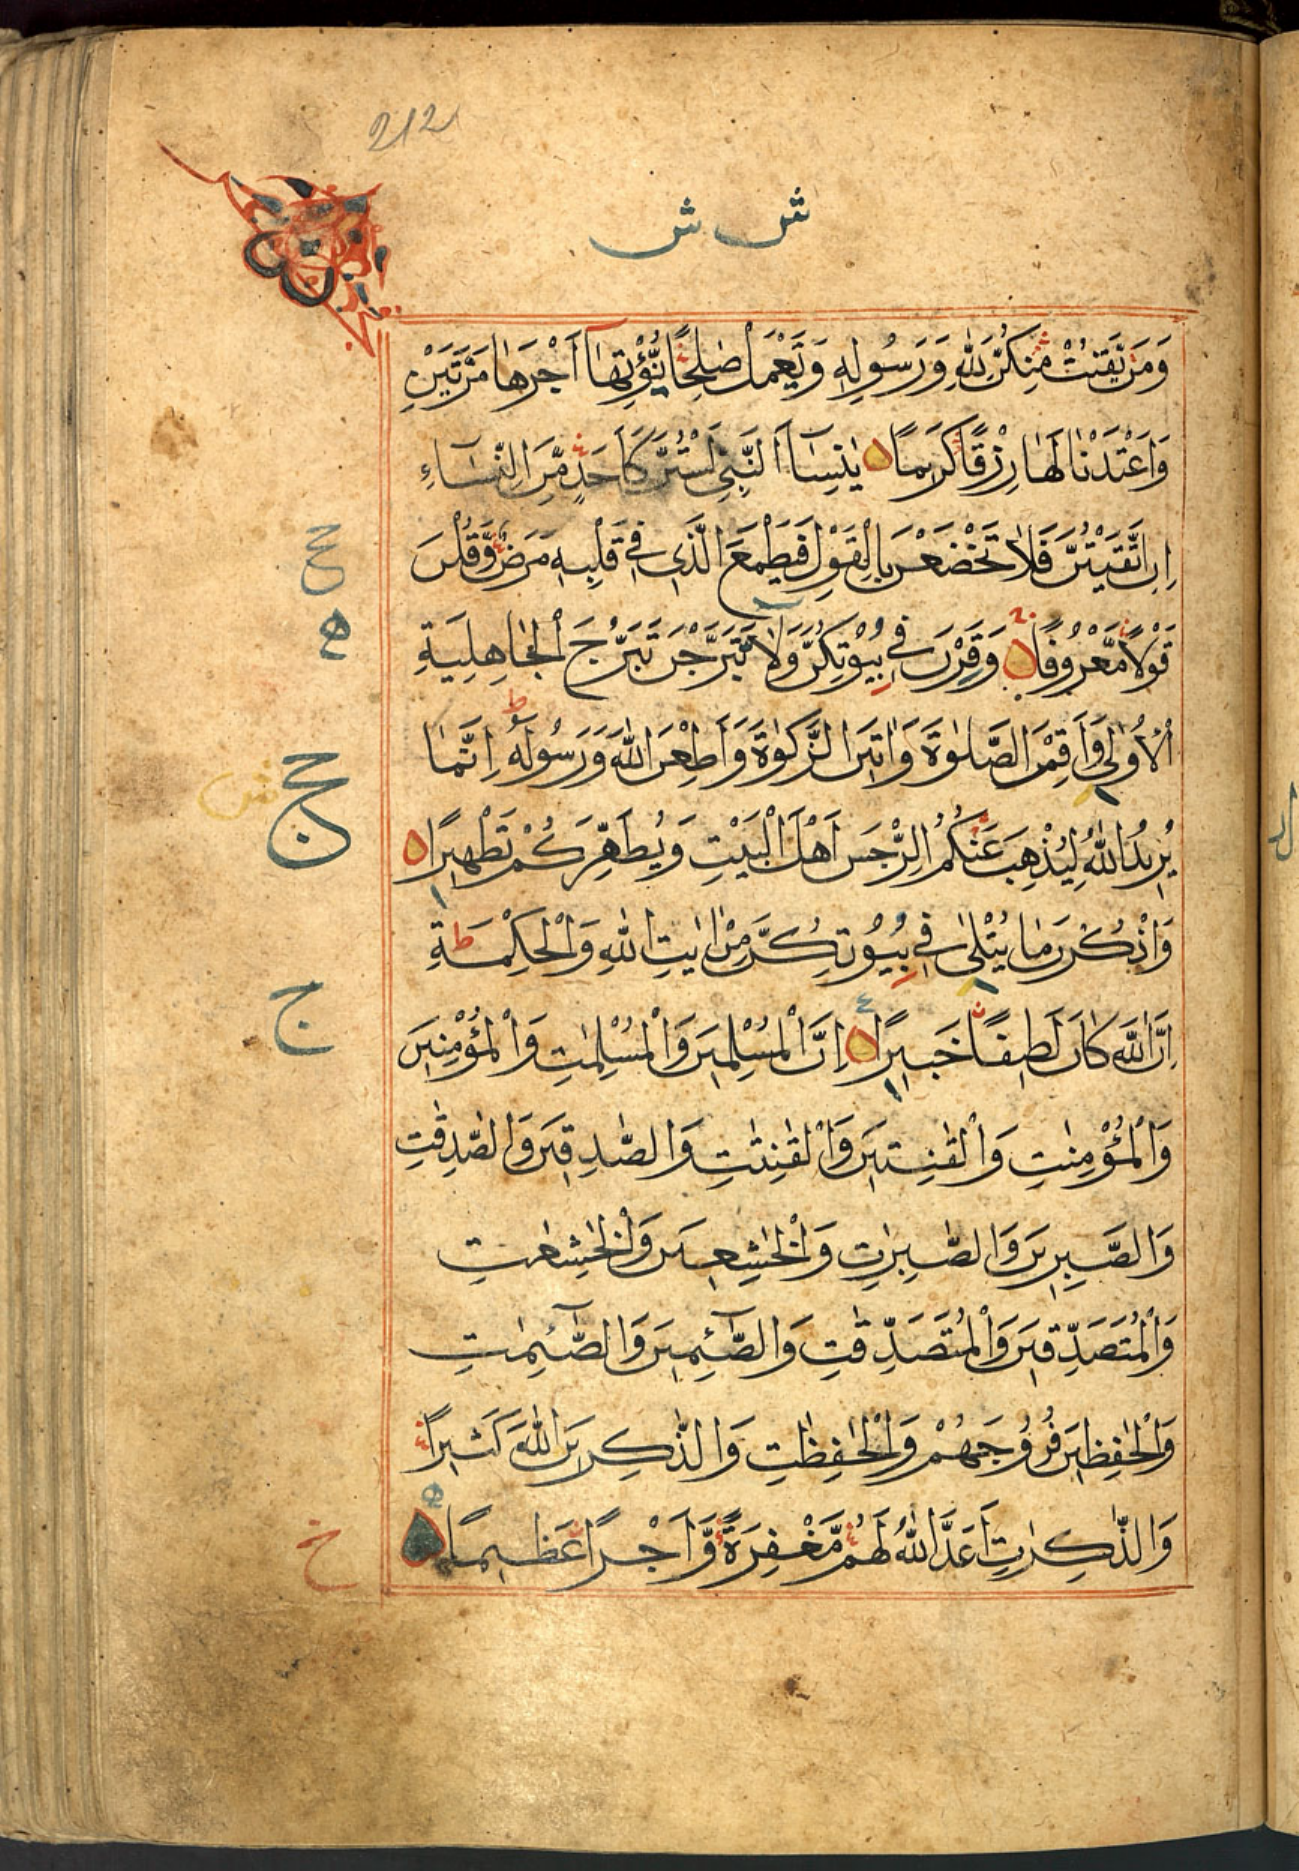 212
ش ش
وَمَنْ يَّقْنُتْ مِنْكُنَّ لِلّٰهِ وَرَسُولِهِ وَتَعْمَلْ صٰلِحًا نُّؤْتِهَآ اَجْرَهَا مَرَّتَيْنِ
وَاَعْتَدْنَا لَهَا رِزْقًا كَرِيمًا يٰنِسَآءَ النَّبِيِّ لَسْتُنَّ كَاَحَدٍ مِّنَ النِّسَآءِ
اِنِ اتَّقَيْتُنَّ فَلَا تَخْضَعْنَ بِالْقَوْلِ فَيَطْمَعَ الَّذِى فِى قَلْبِهِ مَرَضٌ وَّقُلْنَ
قَوْلًا مَّعْرُوفًا وَقَرْنَ فِى بُيُوتِكُنَّ وَلَا تَبَرَّجْنَ تَبَرُّجَ الْجَاهِلِيَّةِ
الْاُولٰى وَاَقِمْنَ الصَّلٰوةَ وَاٰتِينَ الزَّكٰوةَ وَاَطِعْنَ اللّٰهَ وَرَسُولَهُ اِنَّمَا
يُرِيدُ اللّٰهُ لِيُذْهِبَ عَنْكُمُ الرِّجْسَ اَهْلَ الْبَيْتِ وَيُطَهِّرَكُمْ تَطْهِيرًا
وَاذْكُرْنَ مَا يُتْلٰى فِى بُيُوتِكُنَّ مِنْ اٰيٰتِ اللّٰهِ وَالْحِكْمَةِ
اِنَّ اللّٰهَ كَانَ لَطِيفًا خَبِيرًا اِنَّ الْمُسْلِمِينَ وَالْمُسْلِمٰتِ وَالْمُؤْمِنِينَ
وَالْمُؤْمِنٰتِ وَالْقٰنِتِينَ وَالْقٰنِتٰتِ وَالصّٰدِقِينَ وَالصّٰدِقٰتِ
وَالصّٰبِرِينَ وَالصّٰبِرٰتِ وَالْخٰشِعِينَ وَالْخٰشِعٰتِ
وَالْمُتَصَدِّقِينَ وَالْمُتَصَدِّقٰتِ وَالصّٰٓئِمِينَ وَالصّٰٓئِمٰتِ
وَالْحٰفِظِينَ فُرُوجَهُمْ وَالْحٰفِظٰتِ وَالذّٰكِرِينَ اللّٰهَ كَثِيرًا
وَالذّٰكِرٰتِ اَعَدَّ اللّٰهُ لَهُمْ مَّغْفِرَةً وَّاَجْرًا عَظِيمًا